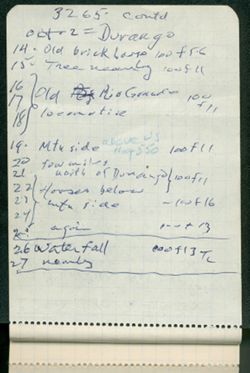 3265. Contd
Oct 2 = Durango
14 - Old brick house 100 f 56
15 - Tree nearby 100 f 11
16
17 Old Rio Grande 100 f 11
18 locomotive
19 - Mtn side above US Hwy 550 100 f 11
20 few miles
21 north of Durango 100 f 11
22 horses below
23 mtn side - 100 f 16
24
25 again f 13
26 Waterfall 100 f 13
27 nearby